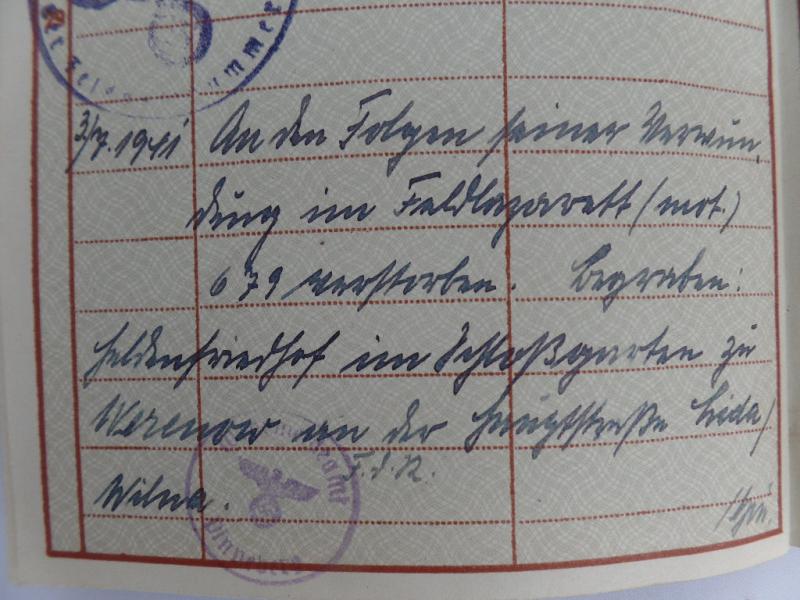 3/7.1941 An den Folgen seiner Verwun
dung im Feldlazarett (mot.)
679 verstorben. Begraben:
Heldenfriedhof im Schloßgarten zu
Werenow an der Hauptstraße Lida/
F.d.R.
Wilna.